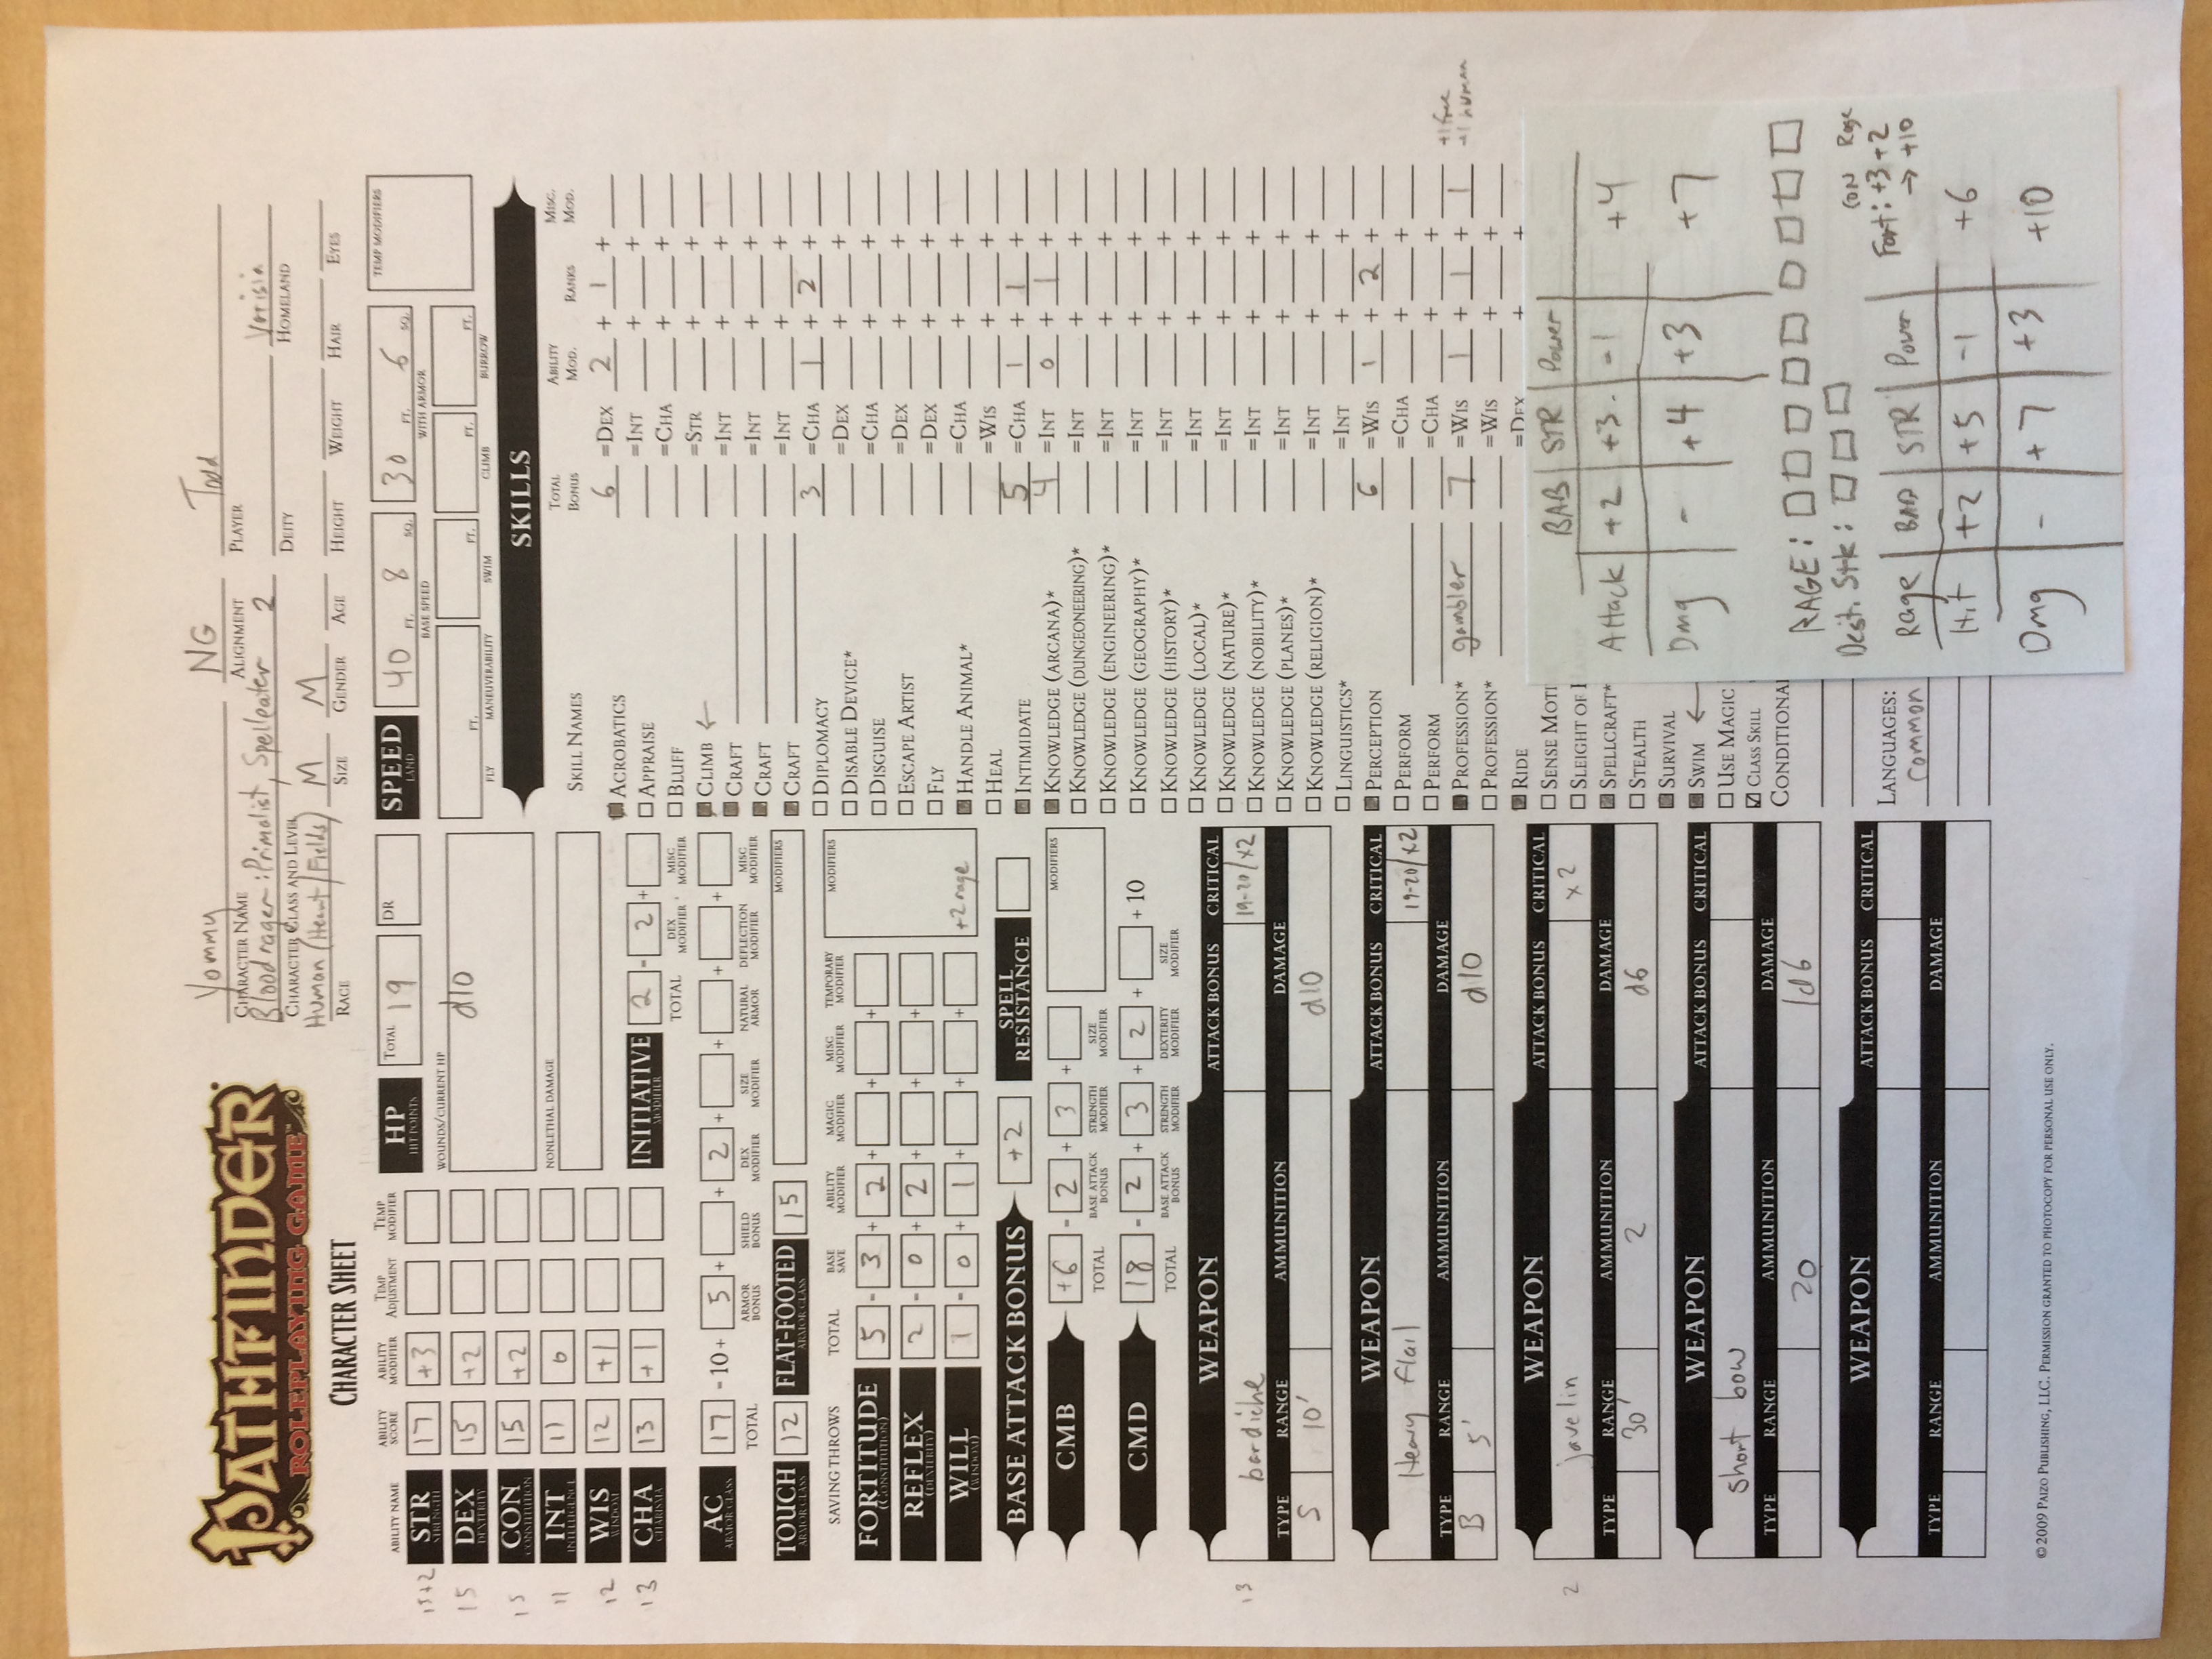 Yommy NG Todd
PATHFINDER
ROLEPLAYING GAME™
CHARACTER NAME ALIGNMENT PLAYER
Bloodrager: Primalist, Spelleater 2 Varisia
CHARACTER CLASS AND LEVEL DEITY HOMELAND
Human (Heart/Fields) M M
RACE SIZE GENDER AGE HEIGHT WEIGHT HAIR EYES
CHARACTER SHEET
ABILITY NAME ABILITY SCORE ABILITY MODIFIER TEMP ADJUSTMENT TEMP MODIFIER
15+2 STR STRENGTH 17 +3
15 DEX DEXTERITY 15 +2
15 CON CONSTITUTION 15 +2
11 INT INTELLIGENCE 11 0
12 WIS WISDOM 12 +1
13 CHA CHARISMA 13 +1
HP HIT POINTS TOTAL 19 DR
WOUNDS/CURRENT HP
d10
NONLETHAL DAMAGE
INITIATIVE MODIFIER 2 = 2 +
TOTAL DEX MODIFIER MISC MODIFIER
SPEED LAND 40 FT. 8 SQ. 30 FT. 6 SQ.
BASE SPEED WITH ARMOR
TEMP MODIFIERS
FT. FT. FT. FT.
FLY MANEUVERABILITY SWIM CLIMB BURROW
AC ARMOR CLASS 17 = 10 + 5 + + 2 + + + +
TOTAL ARMOR BONUS SHIELD BONUS DEX MODIFIER SIZE MODIFIER NATURAL ARMOR DEFLECTION MODIFIER MISC MODIFIER
TOUCH ARMOR CLASS 12 FLAT-FOOTED ARMOR CLASS 15 MODIFIERS
SAVING THROWS TOTAL BASE SAVE ABILITY MODIFIER MAGIC MODIFIER MISC MODIFIER TEMPORARY MODIFIER MODIFIERS
FORTITUDE (CONSTITUTION) 5 = 3 + 2 + + +
REFLEX (DEXTERITY) 2 = 0 + 2 + + +
WILL (WISDOM) 1 = 0 + 1 + + + +2 rage
BASE ATTACK BONUS +2 SPELL RESISTANCE
CMB +6 = 2 + 3 + MODIFIERS
TOTAL BASE ATTACK BONUS STRENGTH MODIFIER SIZE MODIFIER
CMD 18 = 2 + 3 + 2 + + 10
TOTAL BASE ATTACK BONUS STRENGTH MODIFIER DEXTERITY MODIFIER SIZE MODIFIER
WEAPON ATTACK BONUS CRITICAL
13 bardiche 19-20/x2
TYPE RANGE AMMUNITION DAMAGE
S 10' d10
WEAPON ATTACK BONUS CRITICAL
Heavy flail 19-20/x2
TYPE RANGE AMMUNITION DAMAGE
B 5' d10
WEAPON ATTACK BONUS CRITICAL
2 javelin x2
TYPE RANGE AMMUNITION DAMAGE
30' 2 d6
WEAPON ATTACK BONUS CRITICAL
short bow
TYPE RANGE AMMUNITION DAMAGE
20 1d6
WEAPON ATTACK BONUS CRITICAL
TYPE RANGE AMMUNITION DAMAGE
© 2009 PAIZO PUBLISHING, LLC. PERMISSION GRANTED TO PHOTOCOPY FOR PERSONAL USE ONLY.
SKILLS
SKILL NAMES TOTAL BONUS ABILITY MOD. RANKS MISC. MOD.
ACROBATICS 6 =DEX 2 + 1 +
APPRAISE =INT + +
BLUFF =CHA + +
CLIMB ← =STR + +
CRAFT =INT + +
CRAFT =INT + +
CRAFT =INT + +
DIPLOMACY 3 =CHA 1 + 2 +
DISABLE DEVICE* =DEX + +
DISGUISE =CHA + +
ESCAPE ARTIST =DEX + +
FLY =DEX + +
HANDLE ANIMAL* =CHA + +
HEAL =WIS + +
INTIMIDATE 5 =CHA 1 + 1 +
KNOWLEDGE (ARCANA)* 4 =INT 0 + 1 +
KNOWLEDGE (DUNGEONEERING)* =INT + +
KNOWLEDGE (ENGINEERING)* =INT + +
KNOWLEDGE (GEOGRAPHY)* =INT + +
KNOWLEDGE (HISTORY)* =INT + +
KNOWLEDGE (LOCAL)* =INT + +
KNOWLEDGE (NATURE)* =INT + +
KNOWLEDGE (NOBILITY)* =INT + +
KNOWLEDGE (PLANES)* =INT + +
KNOWLEDGE (RELIGION)* =INT + +
LINGUISTICS* =INT + +
PERCEPTION 6 =WIS 1 + 2 +
PERFORM =CHA + +
PERFORM =CHA + +
PROFESSION* gambler 7 =WIS 1 + 1 + 1 +1 free
+1 human
PROFESSION* =WIS + +
RIDE =DEX + +
SENSE MOTI
SLEIGHT OF
SPELLCRAFT*
STEALTH
SURVIVAL
SWIM ←
USE MAGIC
CLASS SKILL
CONDITIONA
LANGUAGES:
common
BAB STR Power
Attack +2 +3 -1 +4
Dmg - +4 +3 +7
RAGE:
Dest. Stk:
CON Rage
Fort: +3 +2
→ +10
Rage BAB STR Power
Hit +2 +5 -1 +6
Dmg - +7 +3 +10